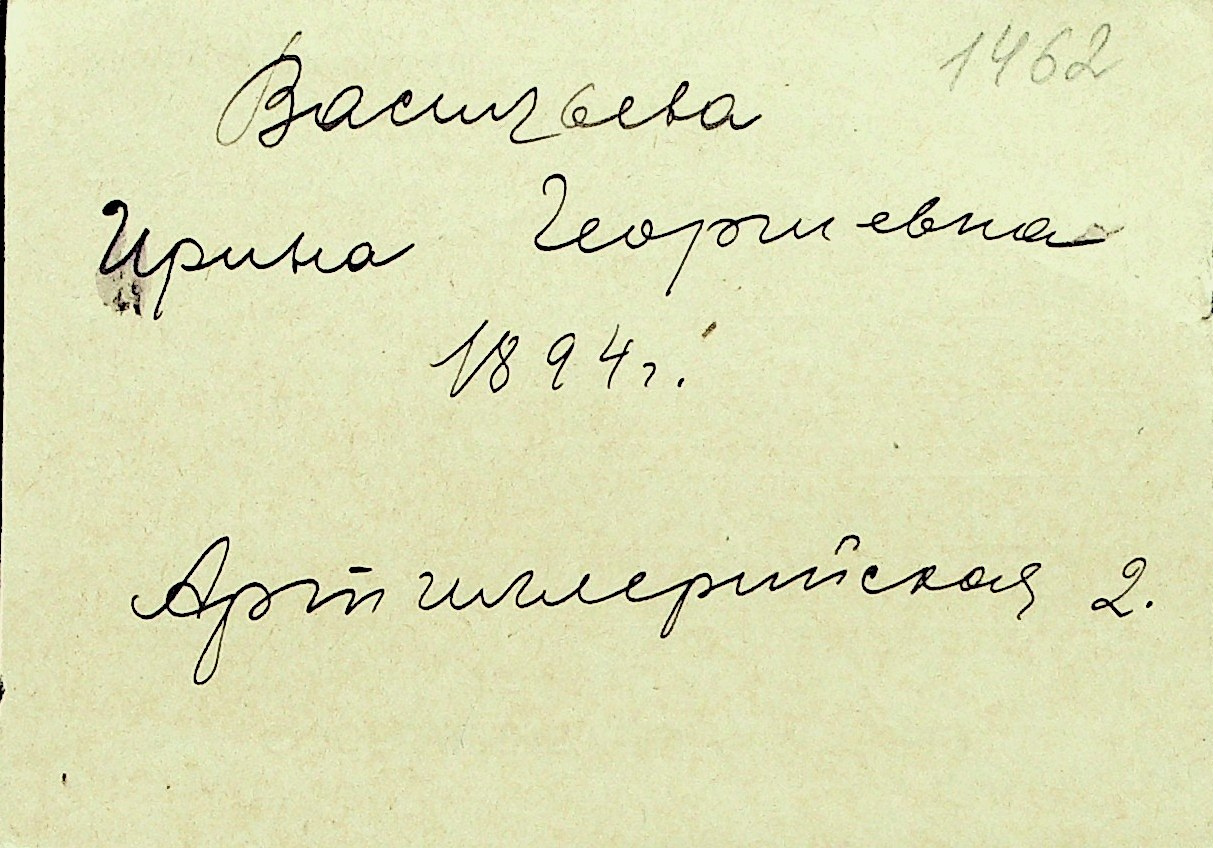 1462
Васильева
Ирина Георгиевна
1894 г.
Артиллерийская 2.